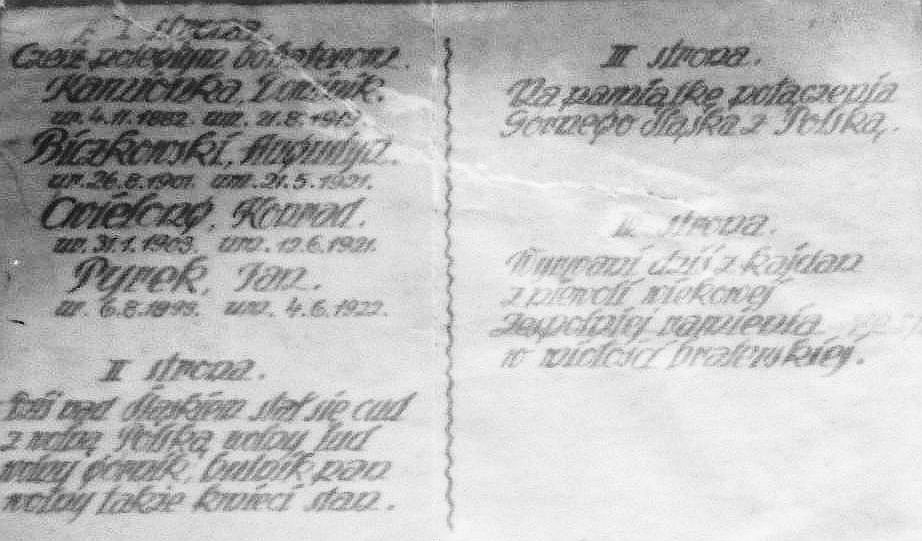 I strona.
Cześć poległym bohaterom.
Kamionka, Dominik.
ur. 4.11.1882. um. 21.8.19
Biczkowski, Augustyn.
ur. 26.8.1901. um. 21.5.1921.
Cwielong, Konrad.
ur. 31.1.1903. um. 12.6.1921.
Pyrek, Jan.
ur. 6.8.1899. um. 4.6.1922.
II strona.
Dziś nad śląskiem stał się cud
z wolną Polską wolny lud
wolny górnik, hutnik pan
wolny także kmieci stan.
III strona.
Na pamiątkę połączenia
Górnego śląska z Polską.
strona.
Wyrwani dziś z kajdan
z niewoli wiekowej
zespolniej ramienia
w miłości braterskiej.